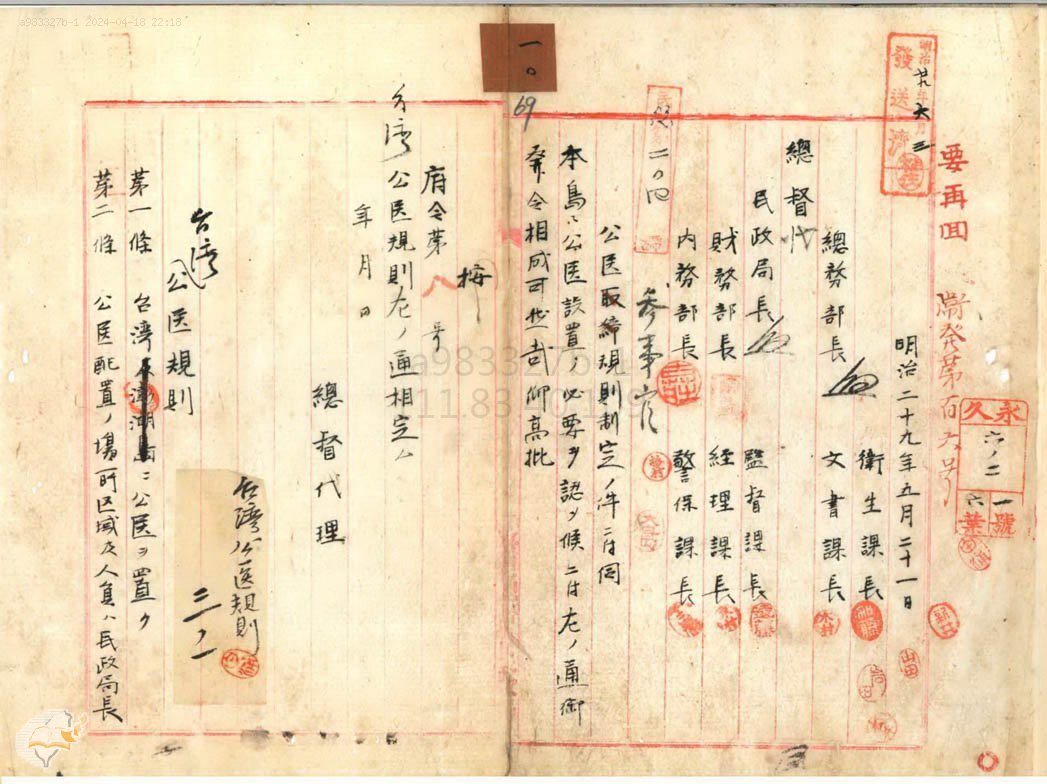 a983327b-1 2024-04-18 22:18
明治廿九年六月三
發送濟
要再回
衛発第百九号
永久
六ノ二
一號
六葉
明治二十九年五月二十一日
衛生課長
總務部長
文書課長
總督代
民政局長
監督課長
財務部長
経理課長
内務部長
警保課長
参事官
二〇四
公医取締規則制定ノ件ニ付伺
本島ニ公医設置ノ必要ヲ認メ候ニ付左ノ通御
発令相成可然哉仰高批
一〇
69
按
府令第八号
年月日
總督代理
台湾公医規則左ノ通相定ム
台湾公医規則
三ノ一
台湾公医規則
第一條 台湾澎湖島ニ公医ヲ置ク
第二條 公医配置ノ場所区域及人員ハ民政局長
a983327b-1